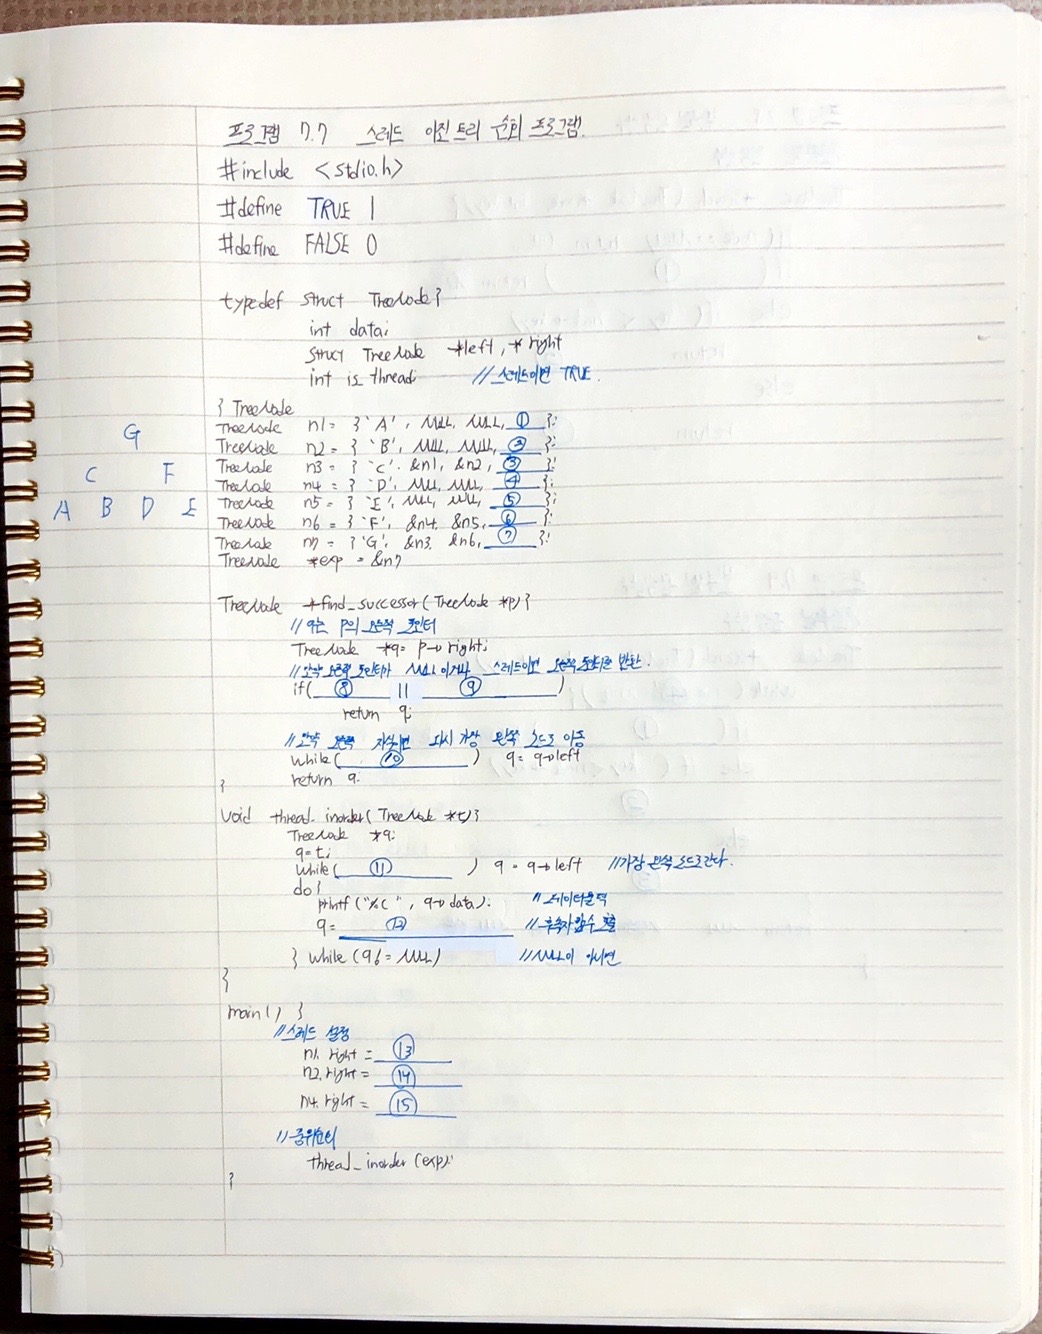 프로그램 7.7 스레드 이진 트리 순회 프로그램.
#include <stdio.h>
#define TRUE 1
#define FALSE 0
typedef struct TreeNode {
int data;
struct TreeNode *left, *right
int is_thread; //스레드이면 TRUE.
} TreeNode
TreeNode n1 = { 'A', NULL, NULL, ① };
TreeNode n2 = { 'B', NULL, NULL, ② };
TreeNode n3 = { 'C'. &n1, &n2, ③ };
TreeNode n4 = { 'D', NULL, NULL, ④ };
TreeNode n5 = { 'E', NULL, NULL, ⑤ };
TreeNode n6 = { 'F', &n4, &n5, ⑥ };
TreeNode n7 = { 'G', &n3, &n6, ⑦ };
TreeNode *exp = &n7
G
C F
A B D E
TreeNode *find_successor(TreeNode *p) {
//q는 p의 오른쪽 포인터
TreeNode *q = p→right;
//만약 오른쪽 포인터가 NULL이거나 스레드이면 오른쪽 포인터를 반환.
if( ⑧ || ⑨ )
return q;
//만약 오른쪽 자식이면 다시 가장 왼쪽 노드로 이동
while( ⑩ ) q = q→left
return q;
}
void thread_inorder(TreeNode *t) {
TreeNode *q;
q=t;
while( ⑪ ) q = q→left //가장 왼쪽 노드로 간다.
do {
printf("%c", q→data); //데이터 출력
q= ⑫ //후속자 함수 호출
} while (q!= NULL) //NULL이 아니면
}
main() {
//스레드 설정
n1.right = ⑬
n2.right = ⑭
n4.right = ⑮
//중위순회
thread_inorder(exp);
}